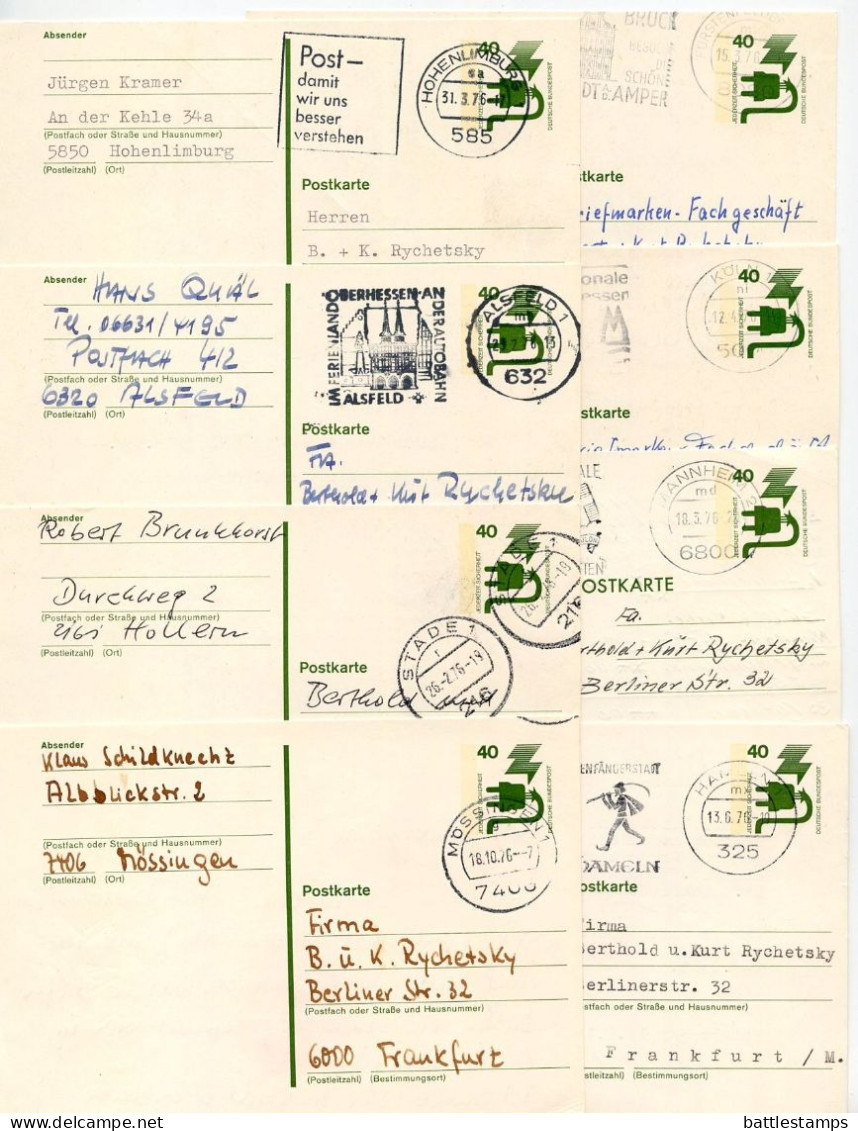 Absender
Jürgen Kramer
An der Kehle 34a
(Postfach oder Straße und Hausnummer)
5850 Hohenlimburg
(Postleitzahl) (Ort)
Post-
damit
wir uns
besser
verstehen
HOHENLIMBURG
31.3.76
585
40
JEDERZEIT SICHERHEIT
DEUTSCHE BUNDESPOST
Postkarte
Herren
B. + K. Rychetsky
BRUCK
SCHÖN
AMPER
15.3.76
40
JEDERZEIT SICHERHEIT
DEUTSCHE BUNDESPOST
tkarte
iefmarken-Fachgeschäft
Absender
HANS QUÄL
Tel. 06631/4195
POSTFACH 412
(Postfach oder Straße und Hausnummer)
6320 ALSFELD
(Postleitzahl) (Ort)
IM FERIENLAND OBERHESSEN AN DER AUTOBAHN
ALSFELD
ALSFELD 1
632
40
DEUTSCHE BUNDESPOST
Postkarte
FA.
Berthold + Kurt Rychetsky
onale
essen
KÖLN
40
DEUTSCHE BUNDESPOST
stkarte
Absender
Robert Brunkhorst
Durchweg 2
(Postfach oder Straße und Hausnummer)
2161 Hollern
(Postleitzahl) (Ort)
40
JEDERZEIT SICHERHEIT
STADE 1
26.-2.76-19
216
STADE 1
26.-2.76-19
216
Postkarte
Berthold
ALE
TIEN
MANNHEIM
md
18.3.76
6800
40
JEDERZEIT SICHERHEIT
DEUTSCHE BUNDESPOST
OSTKARTE
Fa.
erthold + Kurt Rychetsky
Berliner Str. 32
Absender
Klaus Schildknecht
Albblickstr. 2
(Postfach oder Straße und Hausnummer)
7406 Mössingen
(Postleitzahl) (Ort)
MÖSSINGEN 1
18.10.76--7
7406
40
JEDERZEIT SICHERHEIT
DEUTSCHE BUNDESPOST
Postkarte
Firma
B. u. K. Rychetsky
Berliner Str. 32
(Postfach oder Straße und Hausnummer)
6000 Frankfurt
(Postleitzahl) (Bestimmungsort)
ENFÄNGERSTADT
HAMELN
HAMELN 1
13.6.76-10
325
40
JEDERZEIT SICHERHEIT
DEUTSCHE BUNDESPOST
ostkarte
Firma
Berthold u.Kurt Rychetsky
erlinerstr. 32
(Postfach oder Straße und Hausnummer)
Frankfurt / M.
stleitzahl) (Bestimmungsort)
battlestamps